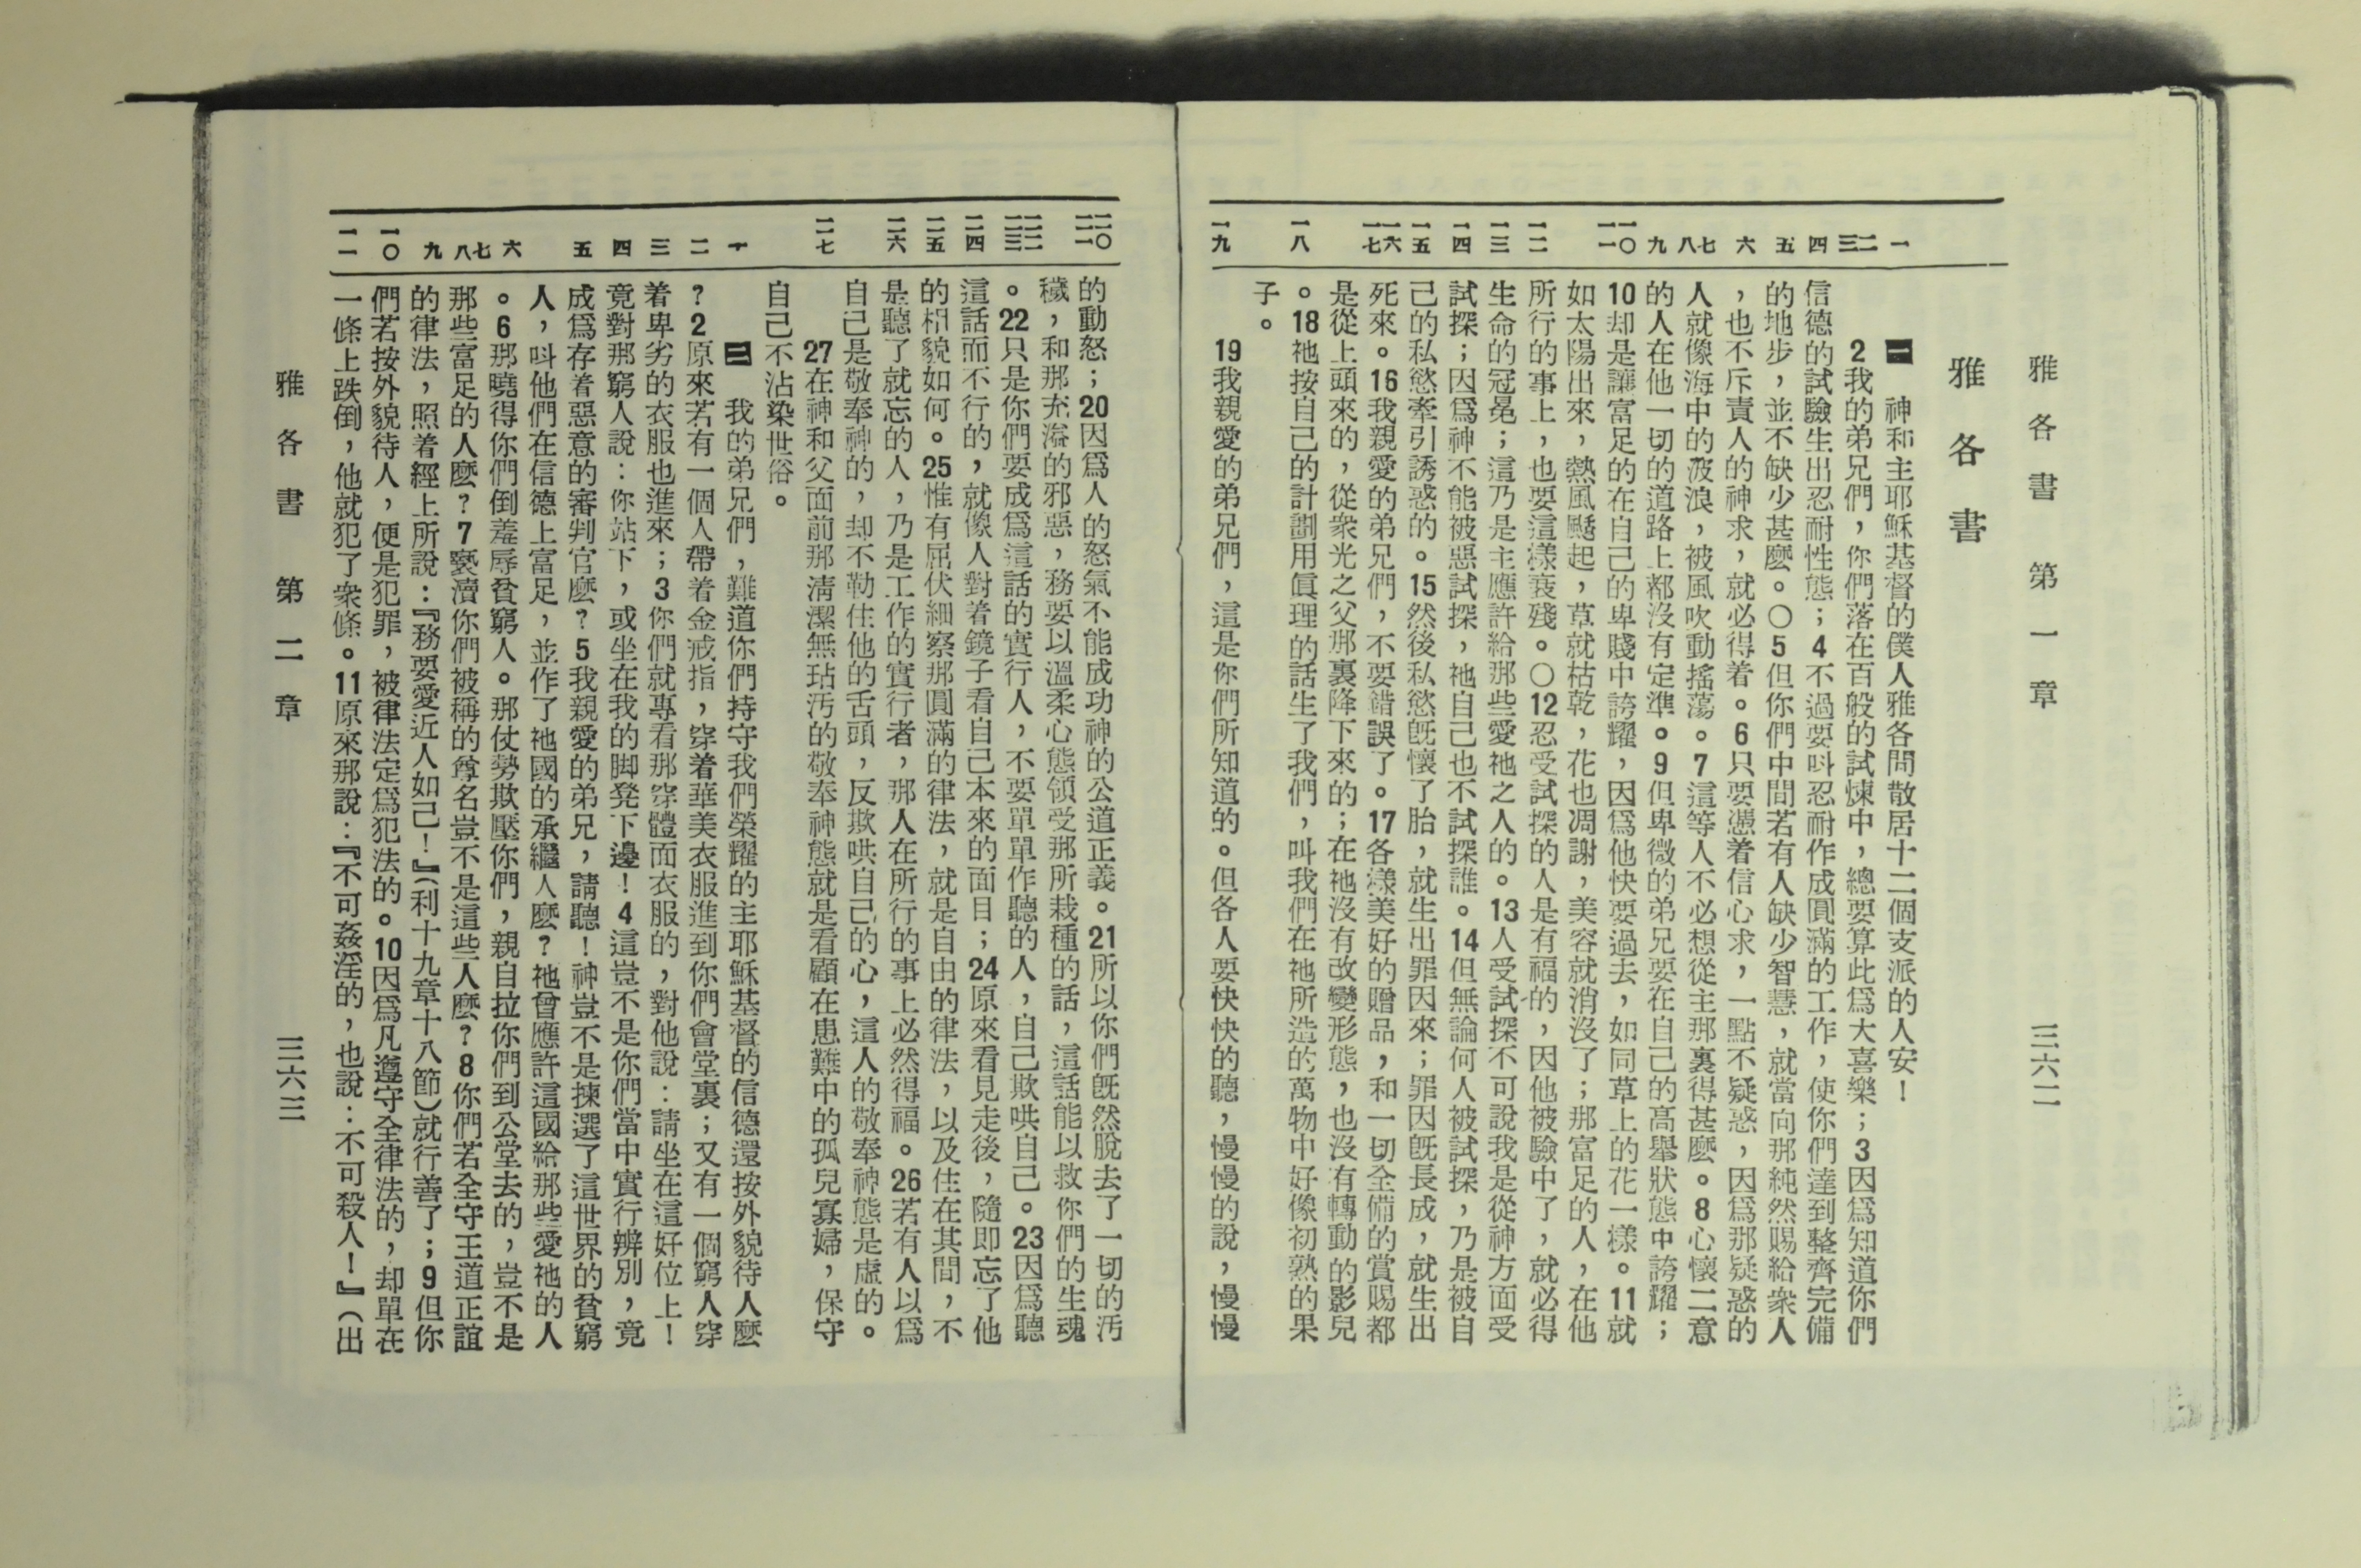 雅各書 第一章 三六二
雅各書
一 二 三 四 五 六 七 八 九 一〇 一一 一二 一三 一四 一五 一六 一七 一八 一九
一 神和主耶穌基督的僕人雅各問散居十二個支派的人安！
2我的弟兄們，你們落在百般的試煉中，總要算此爲大喜樂；3因爲知道你們
信德的試驗生出忍耐性態；4不過要呌忍耐作成圓滿的工作，使你們達到整齊完備
的地步，並不缺少甚麼。〇5但你們中間若有人缺少智慧，就當向那純然賜給衆人
，也不斥責人的神求，就必得着。6只要憑着信心求，一點不疑惑，因爲那疑惑的
人就像海中的波浪，被風吹動搖蕩。7這等人不必想從主那裏得甚麼。8心懷二意
的人在他一切的道路上都沒有定準。9但卑微的弟兄要在自己的高舉狀態中誇耀；
10却是讓富足的在自己的卑賤中誇耀，因爲他快要過去，如同草上的花一樣。11就
如太陽出來，熱風颳起，草就枯乾，花也凋謝，美容就消沒了；那富足的人，在他
所行的事上，也要這樣衰殘。〇12忍受試探的人是有福的，因他被驗中了，就必得
生命的冠冕；這乃是主應許給那些愛祂之人的。13人受試探不可說我是從神方面受
試探；因爲神不能被惡試探，祂自己也不試探誰。14但無論何人被試探，乃是被自
己的私慾牽引誘惑的。15然後私慾旣懷了胎，就生出罪因來；罪因旣長成，就生出
死來。16我親愛的弟兄們，不要錯誤了。17各樣美好的贈品，和一切全備的賞賜都
是從上頭來的，從衆光之父那裏降下來的；在祂沒有改變形態，也沒有轉動的影兒
。18祂按自己的計劃用眞理的話生了我們，叫我們在祂所造的萬物中好像初熟的果
子。
19我親愛的弟兄們，這是你們所知道的。但各人要快快的聽，慢慢的說，慢慢
二〇 二一 二二 二三 二四 二五 二六 二七 十 二 三 四 五 六 七 八 九 一〇 一一
的動怒；20因爲人的怒氣不能成功神的公道正義。21所以你們旣然脫去了一切的汚
穢，和那充溢的邪惡，務要以溫柔心態領受那所栽種的話，這話能以救你們的生魂
。22只是你們要成爲這話的實行人，不要單單作聽的人，自己欺哄自己。23因爲聽
這話而不行的，就像人對着鏡子看自己本來的面目；24原來看見走後，隨即忘了他
的相貌如何。25惟有屈伏細察那圓滿的律法，就是自由的律法，以及住在其間，不
是聽了就忘的人，乃是工作的實行者，那人在所行的事上必然得福。26若有人以爲
自己是敬奉神的，却不勒住他的舌頭，反欺哄自己的心，這人的敬奉神態是虛的。
27在神和父面前那淸潔無玷汚的敬奉神態就是看顧在患難中的孤兒寡婦，保守
自己不沾染世俗。
二 我的弟兄們，難道你們持守我們榮耀的主耶穌基督的信德還按外貌待人麼
？2原來若有一個人帶着金戒指，穿着華美衣服進到你們會堂裏；又有一個窮人穿
着卑劣的衣服也進來；3你們就專看那穿體面衣服的，對他說：請坐在這好位上！
竟對那窮人說：你站下，或坐在我的脚凳下邊！4這豈不是你們當中實行辨別，竟
成爲存着惡意的審判官麼？5我親愛的弟兄，請聽！神豈不是揀選了這世界的貧窮
人，呌他們在信德上富足，並作了祂國的承繼人麼？祂曾應許這國給那些愛祂的人
。6那曉得你們倒羞辱貧窮人。那仗勢欺壓你們，親自拉你們到公堂去的，豈不是
那些富足的人麼？7褻瀆你們被稱的尊名豈不是這些人麼？8你們若全守王道正誼
的律法，照着經上所說：『務要愛近人如己！』（利十九章十八節）就行善了；9但你
們若按外貌待人，便是犯罪，被律法定爲犯法的。10因爲凡遵守全律法的，却單在
一條上跌倒，他就犯了衆條。11原來那說：『不可姦淫的，也說：不可殺人！』（出
雅各書 第二章 三六三